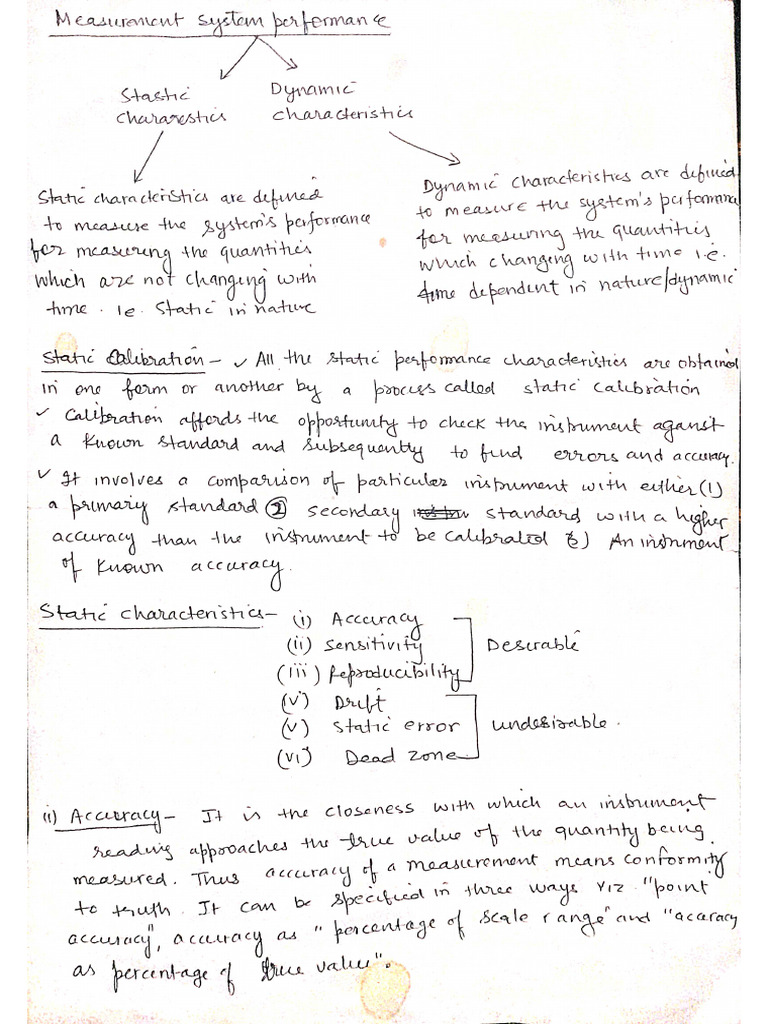 Measurement system performance
Stastic
chararestics
Dynamic
characteristics
Static characteristics are defined
to measure the system's performance
for measuring the quantities
which are not changing with
time. ie. Static in nature
Dynamic characteristics are defined
to measure the system's performance
for measuring the quantities
which changing with time i.e.
time dependent in nature/dynamic
Static Calibration - ✓ All the static performance characteristics are obtained
in one form or another by a process called static calibration
✓ Calibration affords the opportunity to check the instrument against
a known standard and subsequently to find errors and accuracy.
✓ It involves a comparison of particular instrument with either (1)
a primary standard (2) secondary standard with a higher
accuracy than the instrument to be calibrated An instrument
of known accuracy.
Static characteristics- (i) Accuracy
(ii) Sensitivity
(iii) Reproducibility
Desirable
(v) Drift
(v) Static error
(vi) Dead zone
undesirable.
(i) Accuracy - It is the closeness with which an instrument
reading approaches the true value of the quantity being
measured. Thus accuracy of a measurement means conformity
to truth. It can be specified in three ways viz "point
accuracy", accuracy as "percentage of scale range" and "accuracy
as percentage of true value".